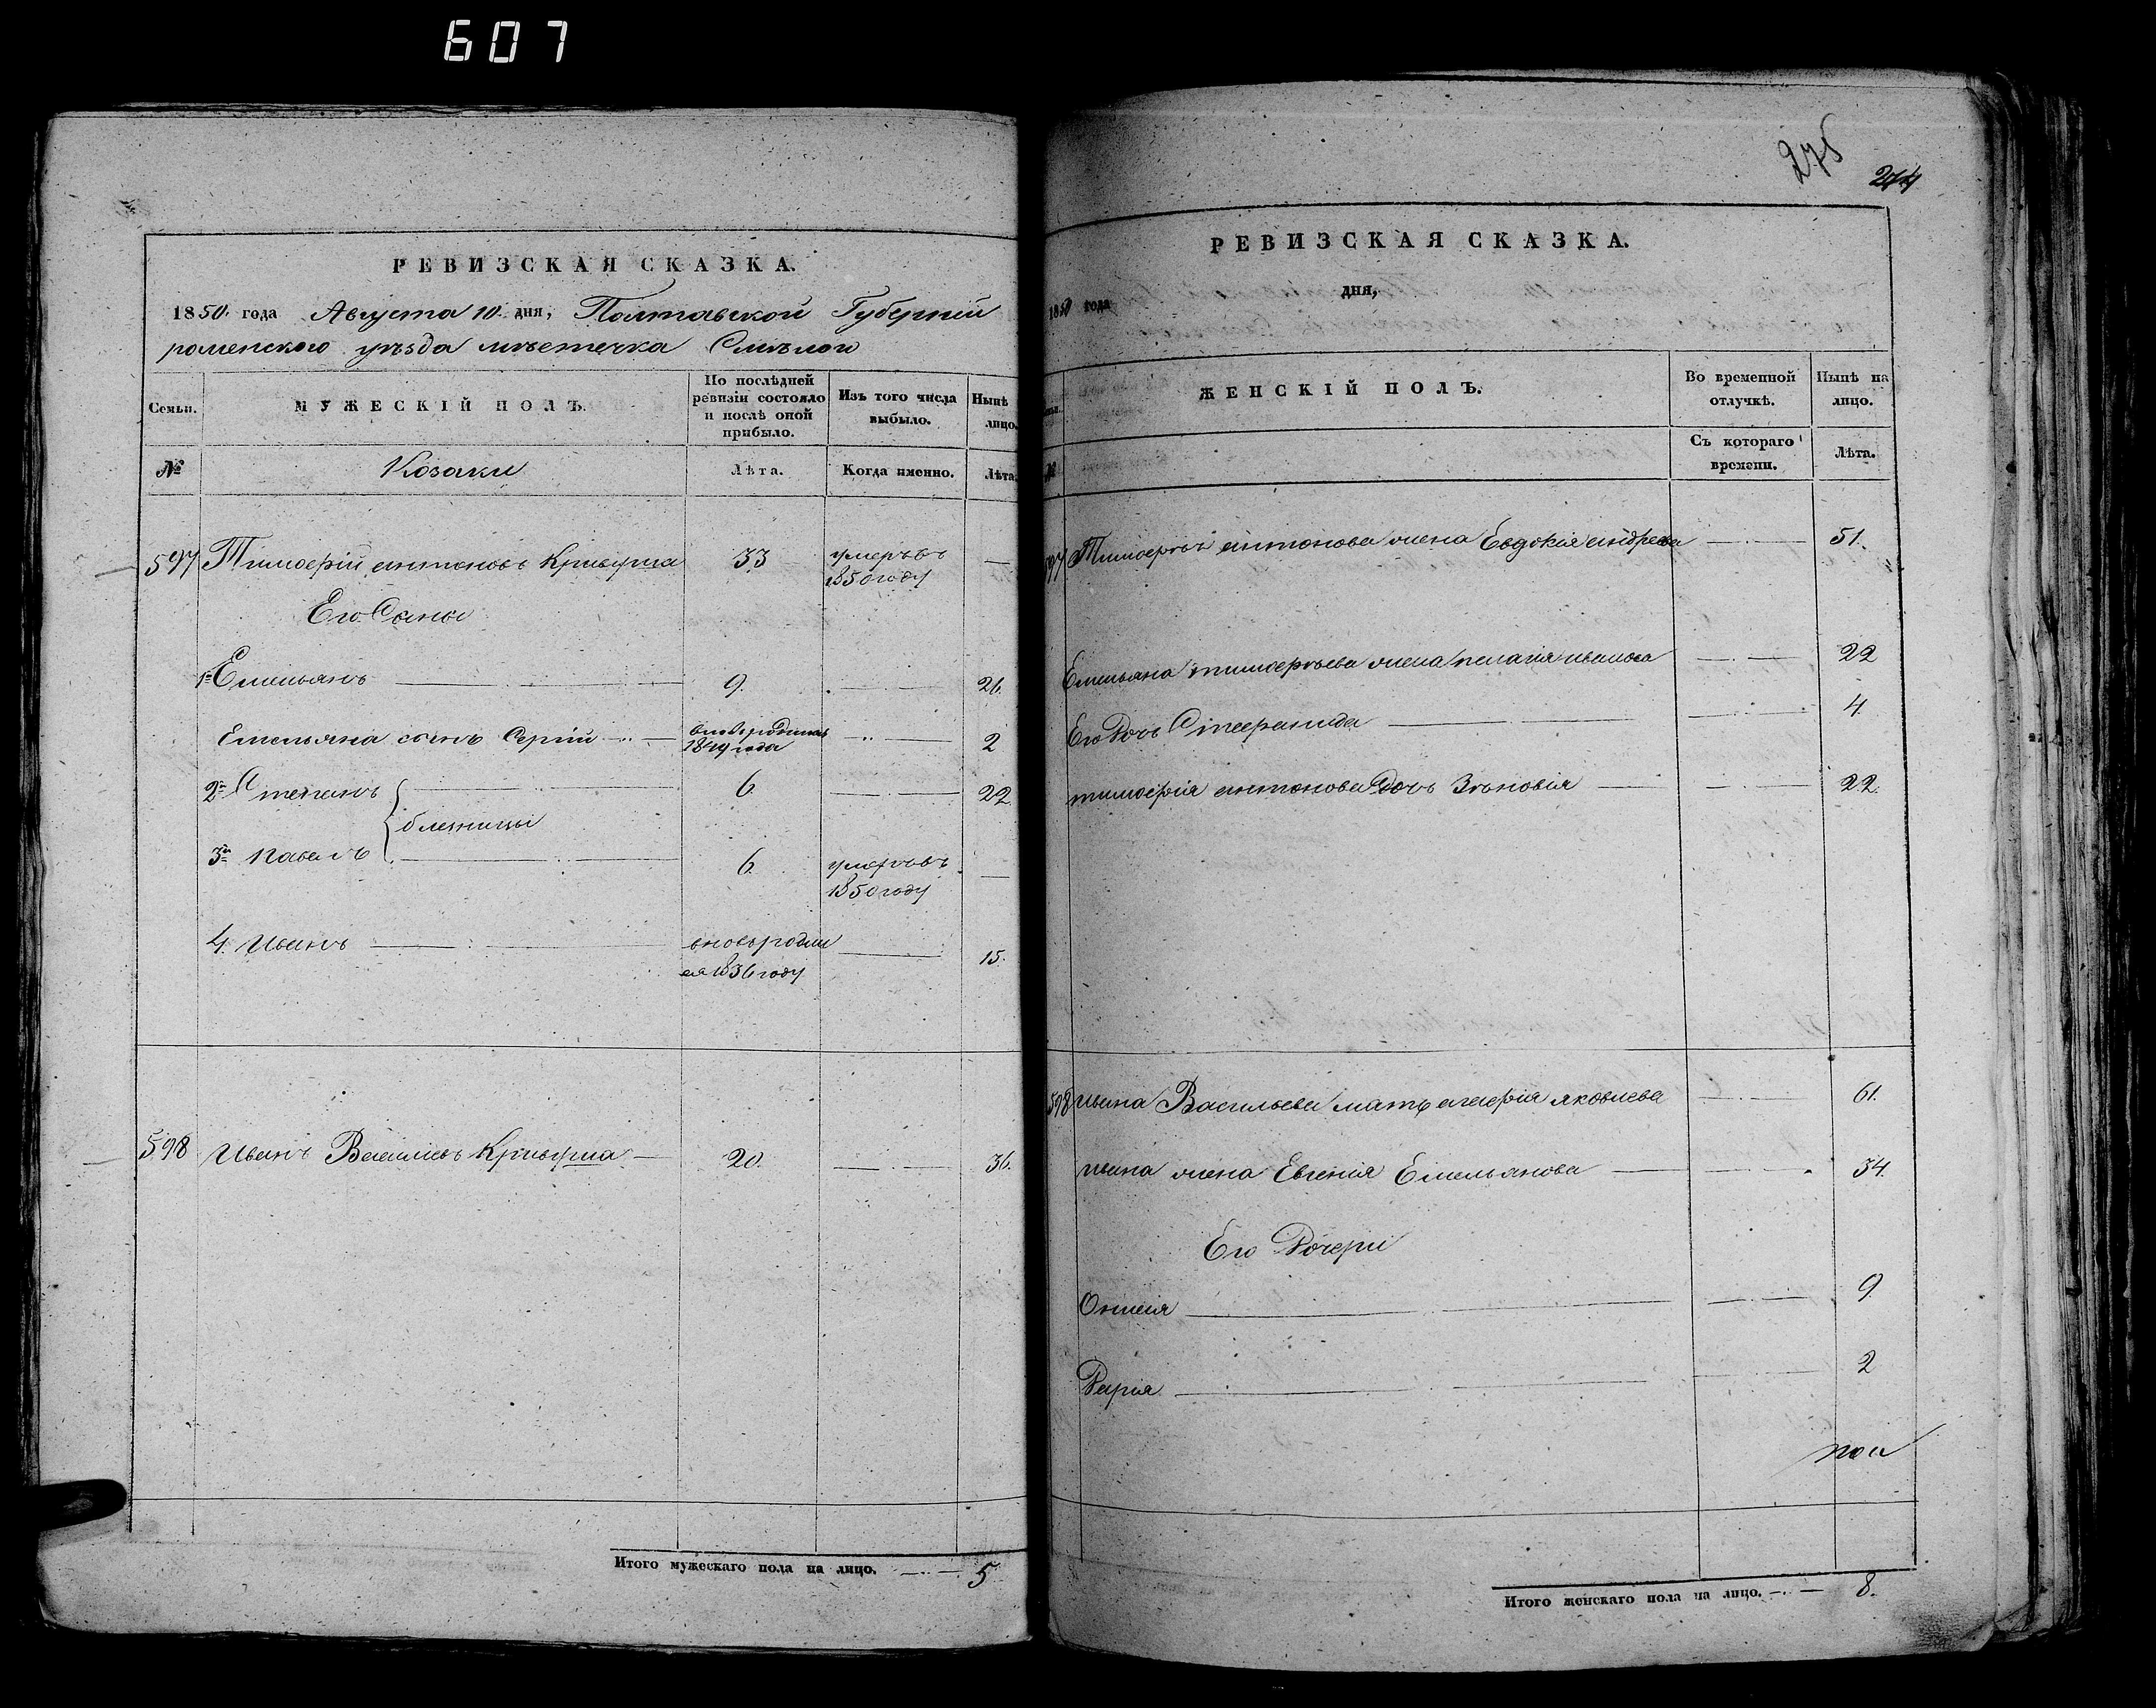 607
РЕВИЗСКАЯ СКАЗКА.
1850. года Августа 10. дня, Полтавской Губерніи
роменского уѣзда мѣстечка Смѣлои
Семьи.
МУЖЕСКІЙ ПОЛЪ.
По послѣдней
ревизіи состояло
и послѣ оной
прибыло.
Изъ того числа
выбыло.
Нынѣ
лицо.
№
Козаки
Лѣта.
Когда именно.
Лѣта.
597 Тимофѣй антоновъ Кривуша 33 умеръ въ —
1850 году
Его Сыны
1й Емельянъ 9. 26.
Емельяна сынъ Сергій 2
1849 года
2й Степанъ 6. 22
близницы
3й павелъ 6. умеръ въ —
1850 году
4. Иванъ вновь родил 15.
ся 1836 году
598 Иванъ Васильевъ Кривуша 20. 36.
Итого мужескаго пола на лицо. 5
275
274
РЕВИЗСКАЯ СКАЗКА.
1850 года дня,
ЖЕНСКІЙ ПОЛЪ.
Во временной
отлучкѣ.
Нынѣ на
лицо.
№
Съ котораго
времени.
Лѣта.
597 Тимофѣя антонова жена Евдокія андреева 51.
Емельяна тимофѣева жена пелагія иванова 22
Его дочь Стефанида 4.
тимофѣя антонова дочь Зѣновія 22.
598 ивана Васильева мать агафія яковлева 61.
ивана жена Евгенія Емельянова 34.
Его Дочери
9
Дарія 2
Итого женскаго пола на лицо. 8.